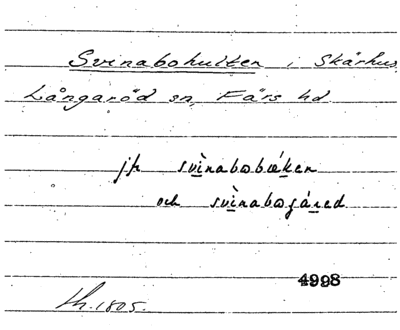 Svinabohulten i Skårhus,
Långaröd sn, Färs hd
jfr svìnabobǽken
och svìnabogáred
4998
th. 1805.